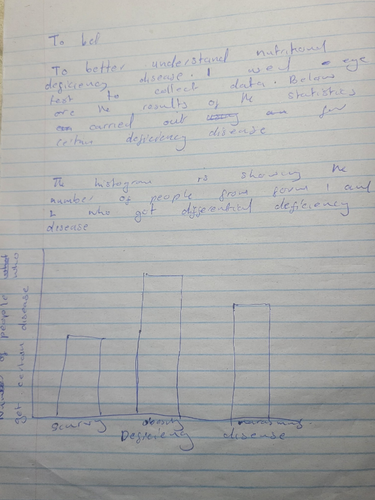 To bet
To better understand nutritional
deficiency disease. I used eye
test to collect data. Below
are the results of the statistics
carried out for
certain deficiency disease
The histogram is showing the
number of people from form 1 and
2 who got differential deficiency
disease
of people who
get certain disease
Scurvy obesity
Deficiency disease